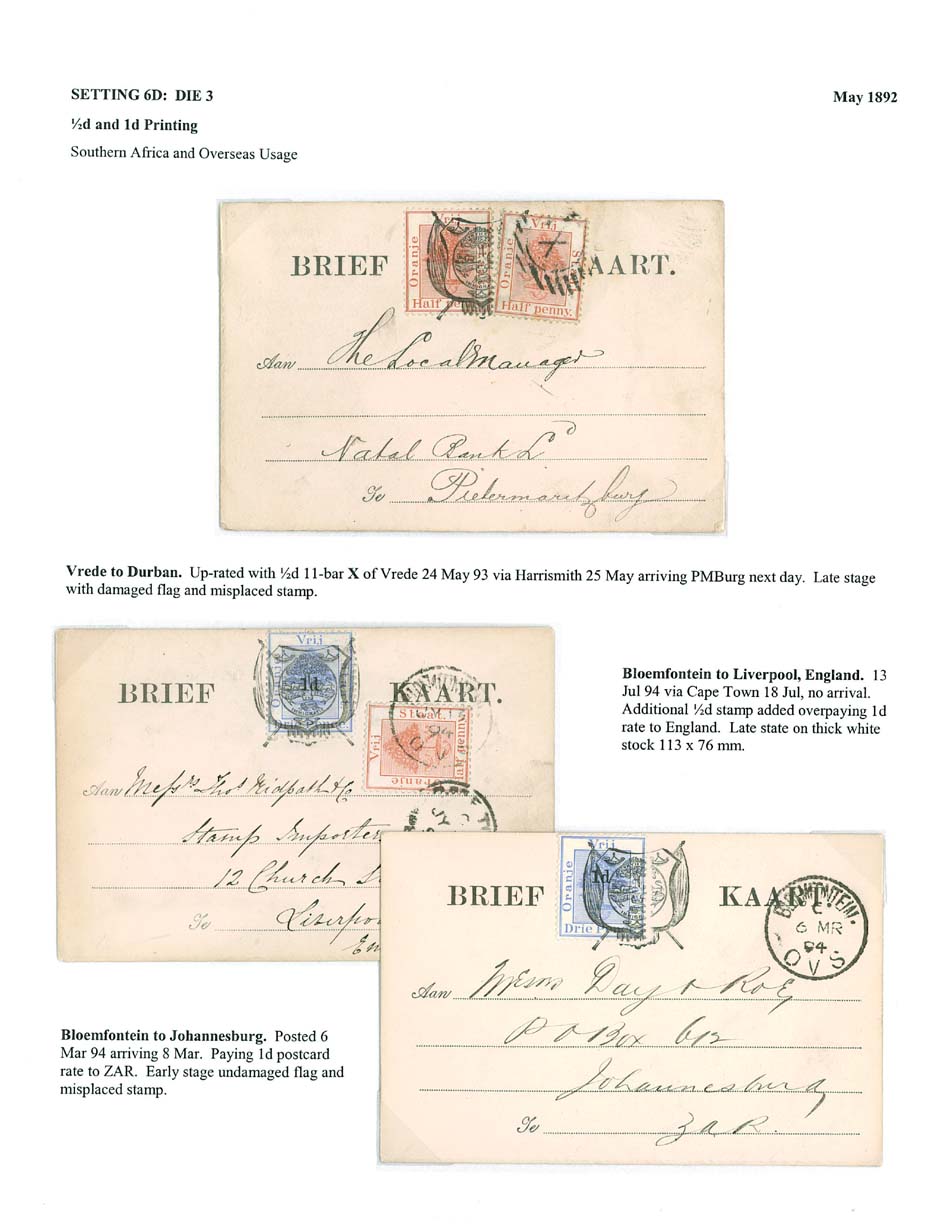 SETTING 6D: DIE 3
May 1892
½d and 1d Printing
Southern Africa and Overseas Usage
Vrij
BRIEF
Oranje
Half pe
Vrij
Oranje
Half penny.
AART.
Aan The Local Manager
Natal Bank Ld
To Pietermaritzburg
Vrede to Durban. Up-rated with ½d 11-bar X of Vrede 24 May 93 via Harrismith 25 May arriving PMBurg next day. Late stage
with damaged flag and misplaced stamp.
Vrij
1d
BRIEF
KAART.
Staat.
Vrij
Oranje
94
Aan Messrs Thos Ridpath & Co
Stamp Importer
12 Church S
To Liverpo
En
Bloemfontein to Liverpool, England. 13
Jul 94 via Cape Town 18 Jul, no arrival.
Additional ½d stamp added overpaying 1d
rate to England. Late state on thick white
stock 113 x 76 mm.
Vrij
Oranje
1d
Drie P
BRIEF
KAART.
BLOEMFONTEIN.
C
6 MR
94
OVS
Aan Messrs Day & Roe,
P O Box 612
Johannesburg
To ZAR.
Bloemfontein to Johannesburg. Posted 6
Mar 94 arriving 8 Mar. Paying 1d postcard
rate to ZAR. Early stage undamaged flag and
misplaced stamp.